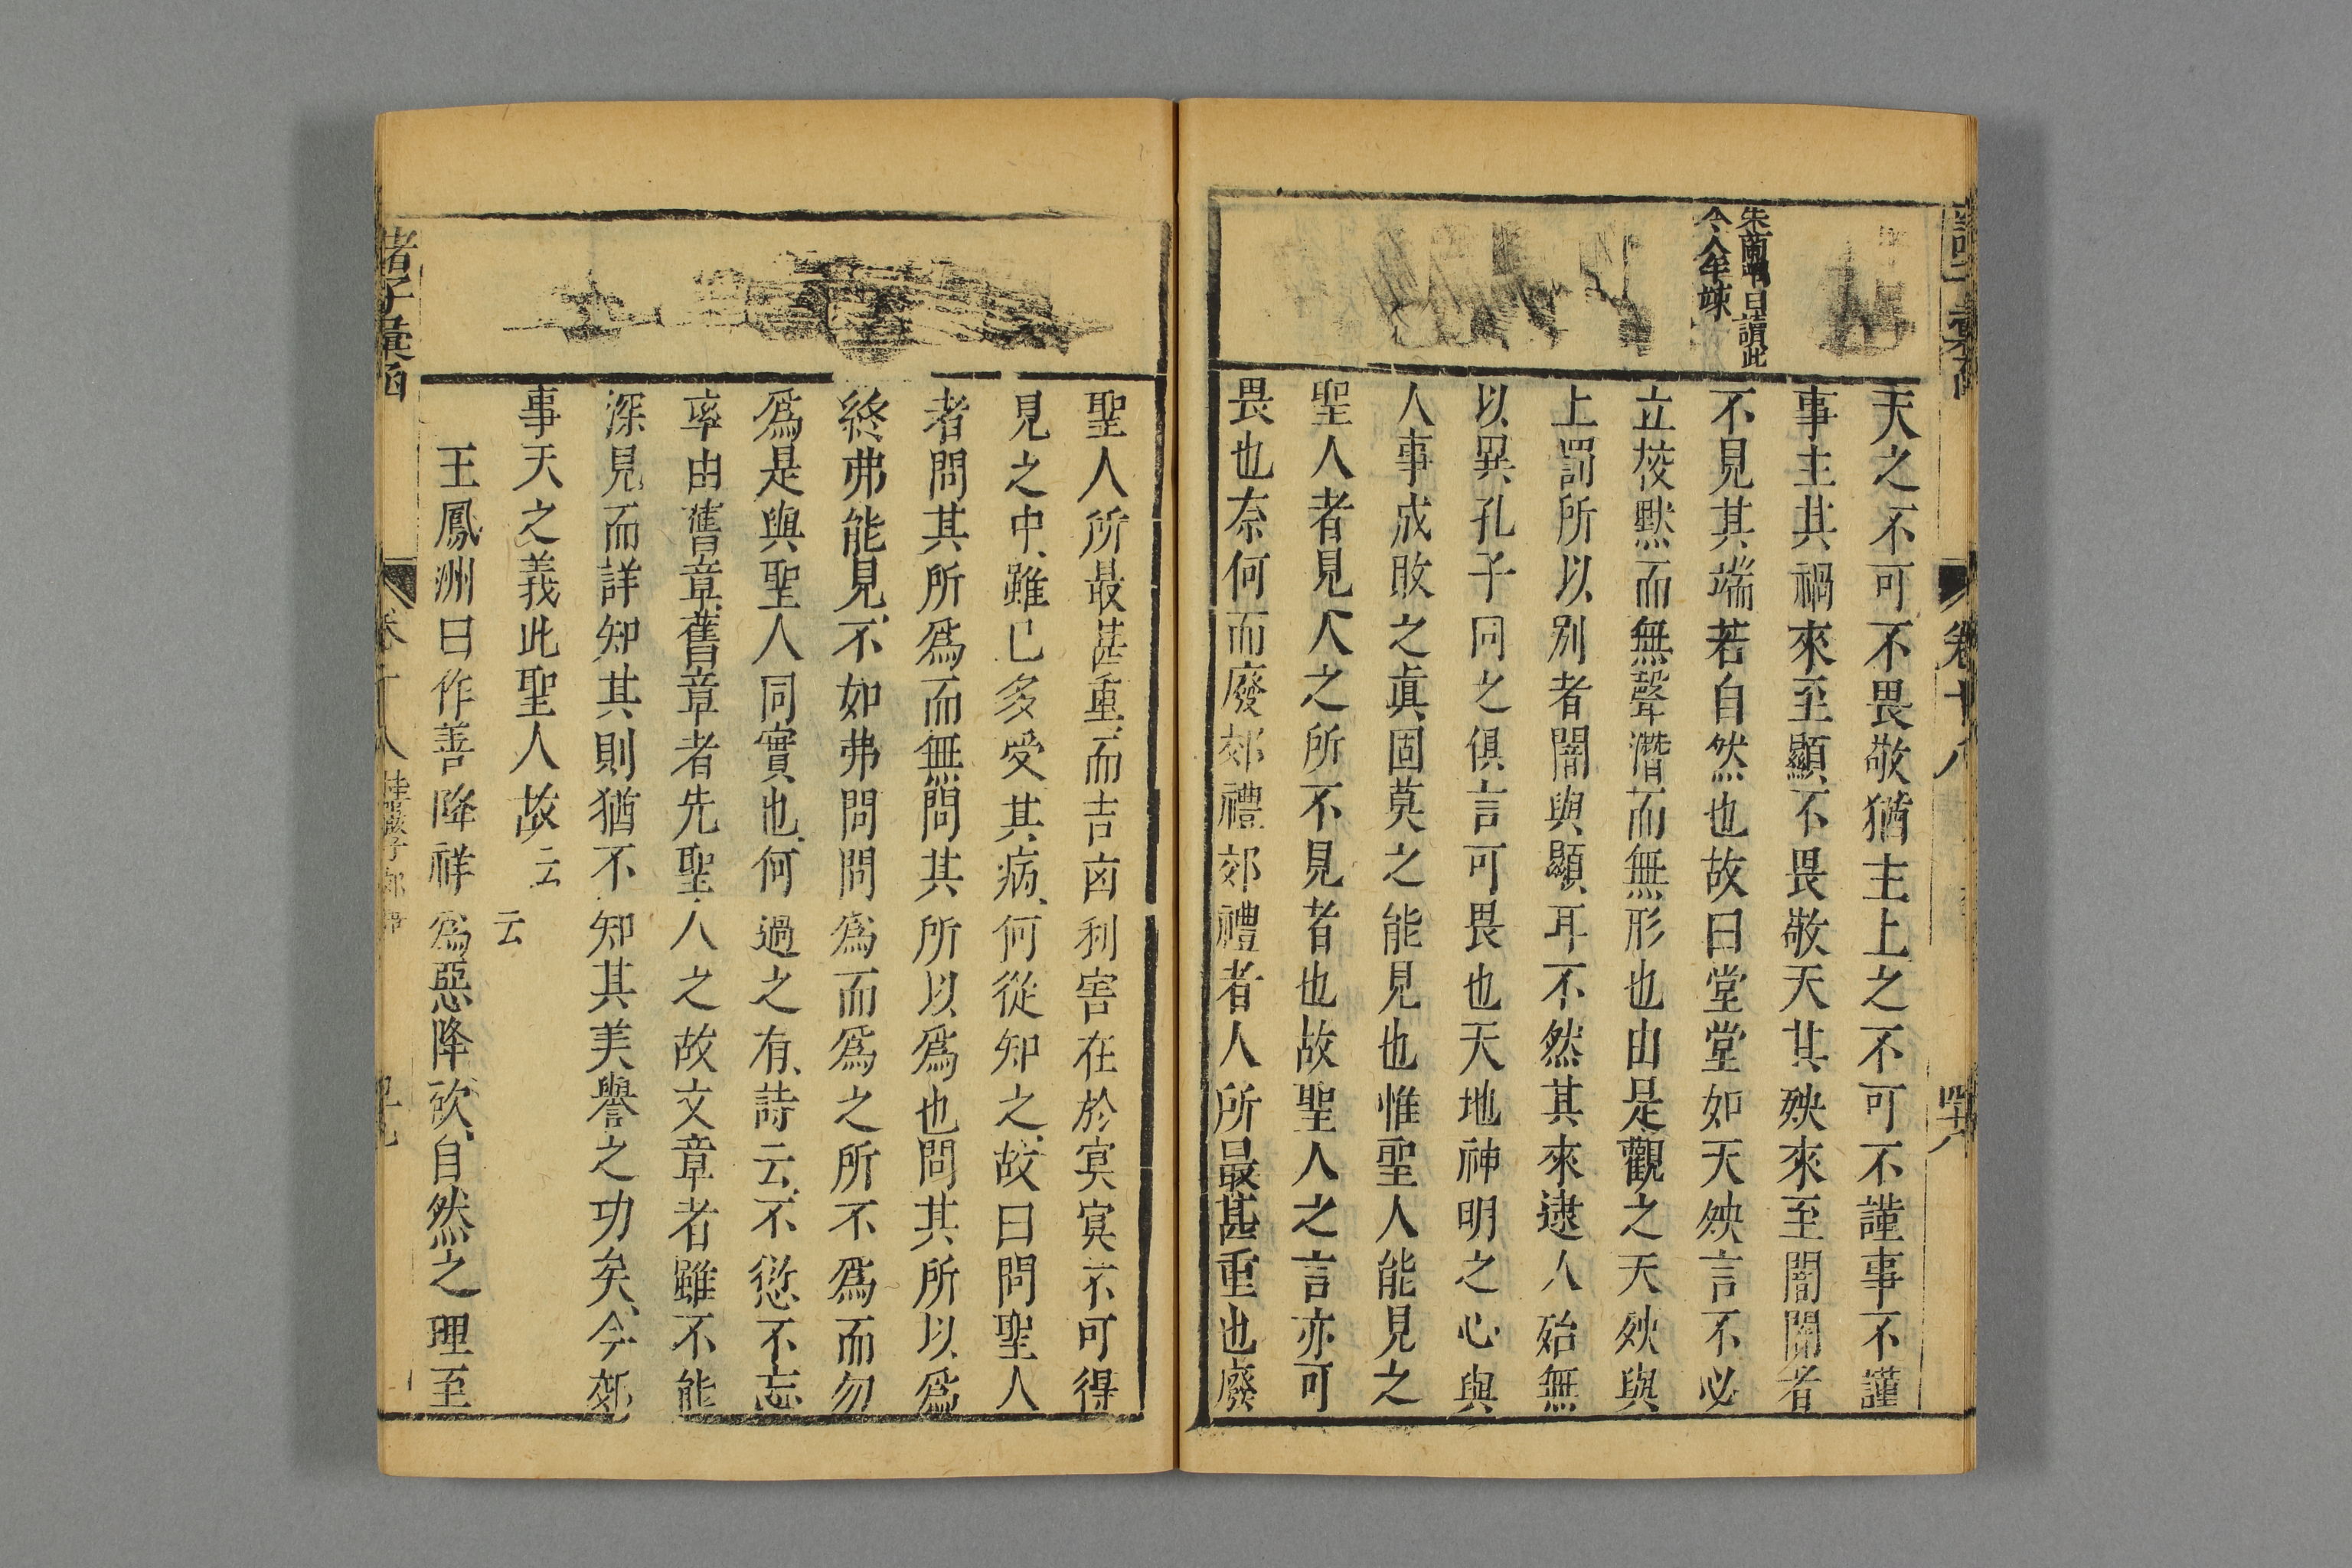 朱蘭嵎曰讀此
令人牟竦
天之不可不畏敬猶主上之不可不謹事不謹
事主其禍來至顯不畏敬天其殃來至闇闇者
不見其端若自然也故曰堂堂如天殃言不必
立校黙而無聲潛而無形也由是觀之天殃與
上罰所以別者闇與顯耳不然其來逮人殆無
以異孔子同之俱言可畏也天地神明之心與
人事成敗之眞固莫之能見也惟聖人能見之
聖人者見人之所不見者也故聖人之言亦可
畏也奈何而廢郊禮郊禮者人所最甚重也廢
聖人所最甚重而吉凶利害在於㝠㝠不可得
見之中雖已多受其病何從知之故曰問聖人
者問其所爲而無問其所以爲也問其所以爲
終弗能見不如弗問問爲而爲之所不爲而勿
爲是與聖人同實也何過之有詩云不愆不忘
率由舊章舊章者先聖人之故文章者雖不能
深見而詳知其則猶不知其美譽之功矣今郊
事天之義此聖人故云云
王鳳洲曰作善降祥爲惡降殃自然之理至
諸子彙函
卷十八